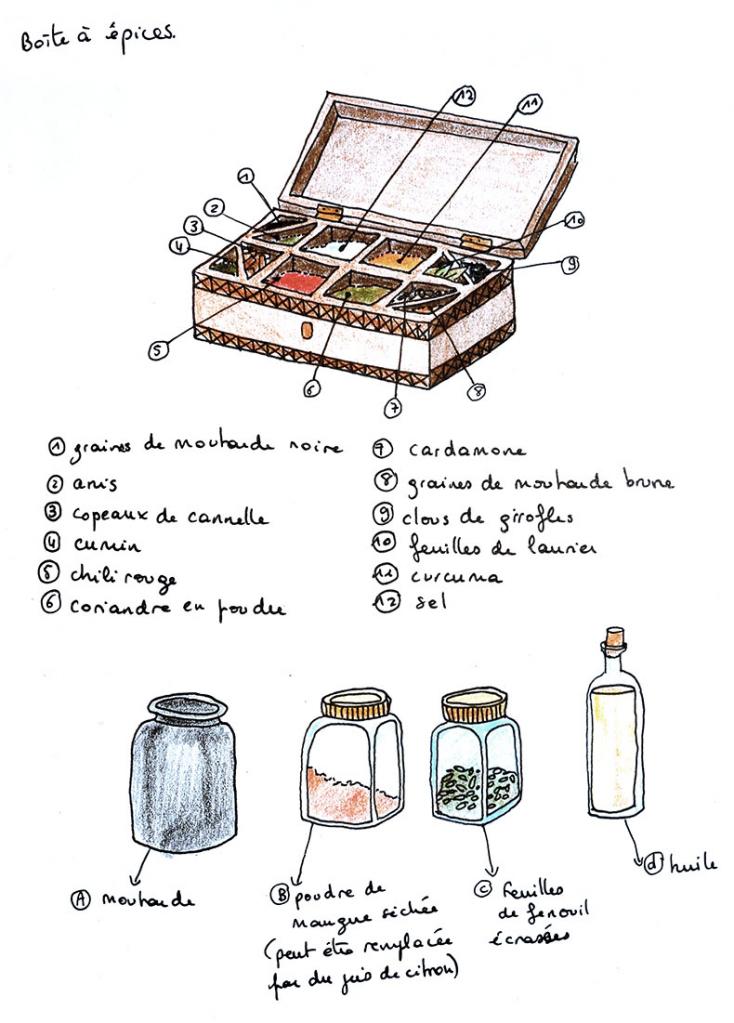 Boîte à épices.
12
11
1
2
3
4
10
9
5
6
7
8
1 graines de moutarde noire
2 anis
3 copeaux de cannelle
4 cumin
5 chili rouge
6 coriandre en poudre
7 cardamone
8 graines de moutarde brune
9 clous de girofles
10 feuilles de laurier
11 curcuma
12 sel
A moutarde
B poudre de
mangue séchée
(peut être remplacée
par du jus de citron)
C Feuilles
de fenouil
écrasées
d huile